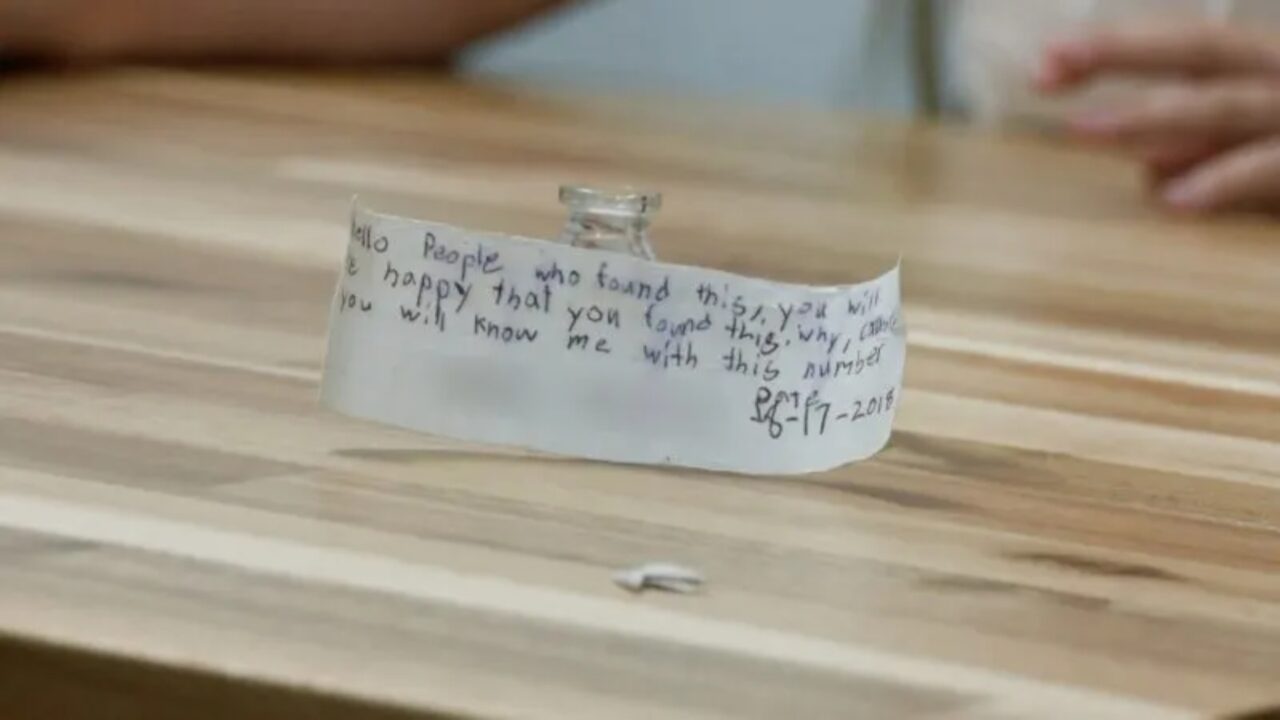 Hello People who found this, you will
be happy that you found this. why, cause
you will know me with this number
Date
8-17-2018